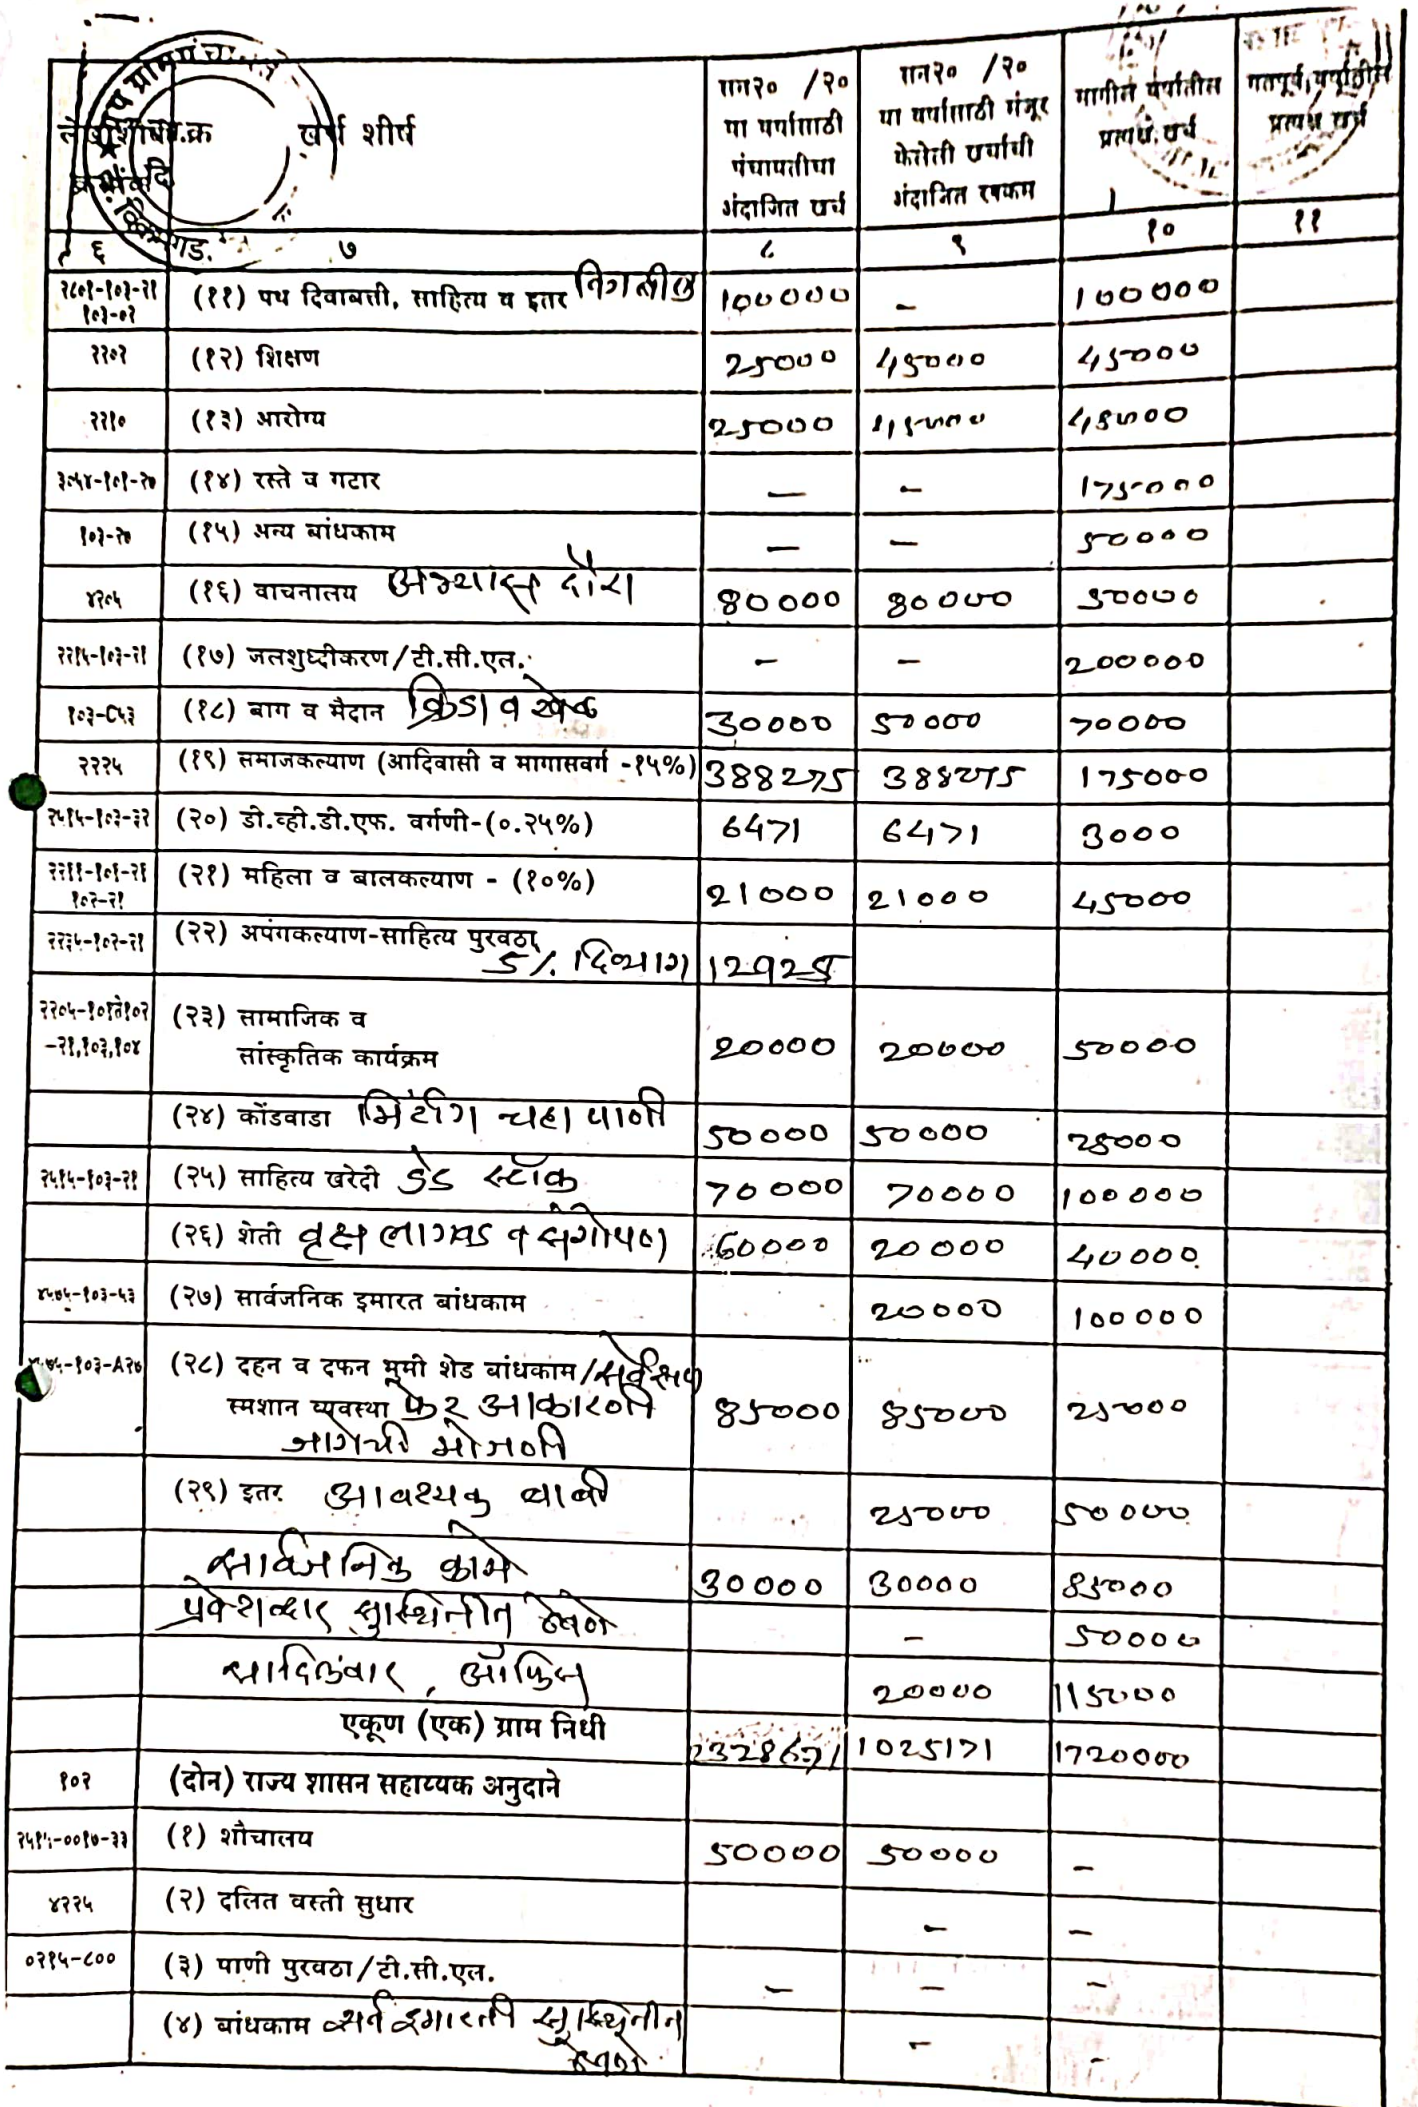 ग्रामपंचायत
लेखाशिर्ष अ.क्र खर्च शीर्ष
क्रमांक
सन२० /२०
या वर्षासाठी
पंचायतीचा
अंदाजित खर्च
सन२० /२०
या वर्षासाठी मंजूर
केलेली खर्चाची
अंदाजित रक्कम
मागील वर्षातील
प्रत्यक्ष खर्च
गतपूर्व वर्षातील
प्रत्यक्ष खर्च
६ ७ ८ ९ १० ११
२८०१-१०३-२१
१०३-०२
(११) पथ दिवाबत्ती, साहित्य व इतर 100000 - 100000
२२०२ (१२) शिक्षण 25000 45000 45000
२२१० (१३) आरोग्य 25000 45000 45000
३०५४-१०१-२७ (१४) रस्ते व गटार - - 175000
१०३-२७ (१५) अन्य बांधकाम - - 50000
४२०५ (१६) वाचनालय अभ्यास दौरा 80000 80000 50000
२२१५-१०३-२१ (१७) जलशुध्दीकरण/टी.सी.एल. - - 200000
१०३-C५३ (१८) बाग व मैदान क्रिडा व खेळ 30000 50000 70000
२२२५ (१९) समाजकल्याण (आदिवासी व मागासवर्ग -१५%) 388275 388275 175000
२५१५-१०३-३२ (२०) डी.व्ही.डी.एफ. वर्गणी-(०.२५%) 6471 6471 3000
२२११-१०१-२६
१०२-२१
(२१) महिला व बालकल्याण - (१०%) 21000 21000 45000
२२३५-१०२-२१ (२२) अपंगकल्याण-साहित्य पुरवठा
5% दिव्यांग 129425
२२०५-१०१ते१०२ (२३) सामाजिक व
-२१,१०३,१०४ सांस्कृतिक कार्यक्रम 20000 20000 50000
(२४) कोंडवाडा मिटींग चहा पाणी 50000 50000 25000
२५१५-१०३-२१ (२५) साहित्य खरेदी डेड स्टॉक 70000 70000 100000
(२६) शेती वृक्ष लागवड व संगोपण 60000 20000 40000
४५७५-१०३-५३ (२७) सार्वजनिक इमारत बांधकाम 20000 100000
४५७५-१०३-A२७ (२८) दहन व दफन भूमी शेड बांधकाम/सर्वेक्षण
स्मशान व्यवस्था फेर आकारणी 85000 85000 25000
जागेची मोजणी
(२९) इतर आवश्यक बाबी 25000 50000
सार्वजनिक कामे 30000 30000 85000
प्रवेशव्दार सुस्थितीत ठेवणे - 50000
सादिलवार, ऑफिस 20000 115000
एकूण (एक) ग्राम निधी 2328671 1025171 1720000
१०२ (दोन) राज्य शासन सहाय्यक अनुदाने
२५१५-००१७-३३ (१) शौचालय 50000 50000 -
४२२५ (२) दलित वस्ती सुधार - -
०२१५-८०० (३) पाणी पुरवठा/टी.सी.एल. - - -
(४) बांधकाम सर्व इमारती सुस्थितीत - -
ठेवणे